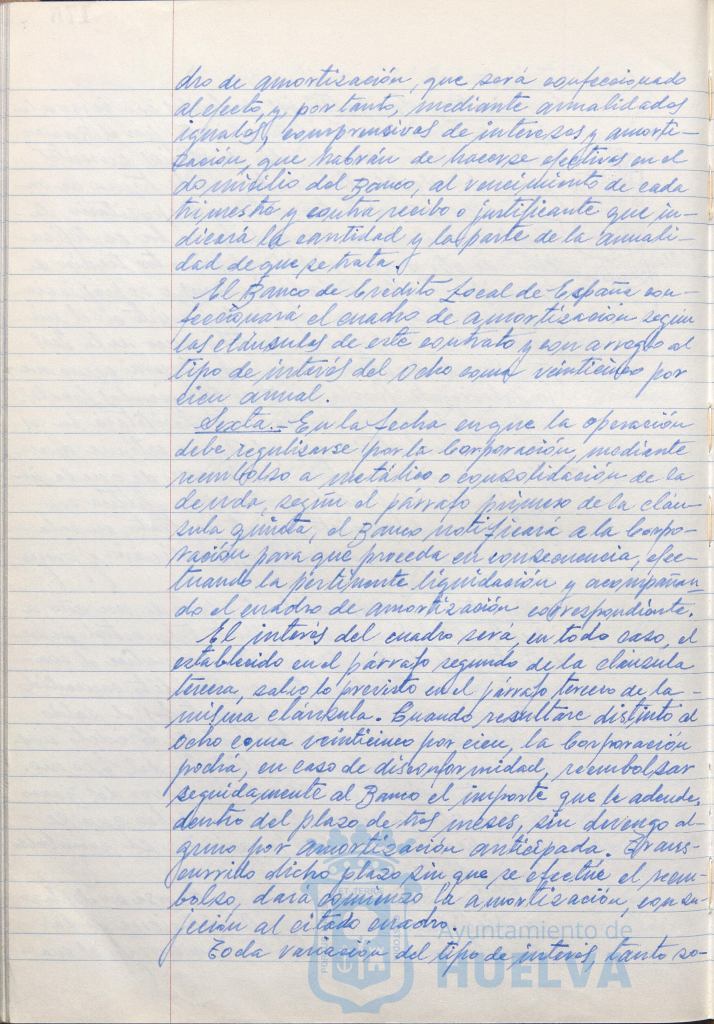 dro de amortización, que será confeccionado
al efecto, y, por tanto, mediante anualidades
iguales, comprensivas de intereses y amorti-
zación, que habrán de hacerse efectivas en el
domicilio del Banco, al vencimiento de cada
trimestre y contra recibo o justificante que in-
dicará la cantidad y la parte de la anuali-
dad de que se trata.
El Banco de Crédito Local de España con-
feccionará el cuadro de amortización según
las cláusulas de este contrato y con arreglo al
tipo de interés del ocho coma veinticinco por
cien anual.
Sexta.- En la fecha en que la operación
debe regulizarse por la Corporación, mediante
reembolso a metálico o consolidación de la
deuda, según el párrafo primero de la cláu-
sula quinta, el Banco notificará a la Corpo-
ración para que proceda en consecuencia, efec-
tuando la pertinente liquidación y acompañan-
do el cuadro de amortización correspondiente.
El interés del cuadro será, en todo caso, el
establecido en el párrafo segundo de la cláusula
tercera, salvo lo previsto en el párrafo tercero de la
misma cláusula. Cuando resultare distinto al
ocho coma veinticinco por cien, la Corporación
podrá, en caso de disconformidad, reembolsar
seguidamente al Banco el importe que le adeude,
dentro del plazo de tres meses, sin devengo al-
guno por amortización anticipada. Trans-
currido dicho plazo sin que se efectúe el reem-
bolso, dará comienzo la amortización, con su-
jeción al citado cuadro.
Toda variación del tipo de interés, tanto so-
Ayuntamiento de
HUELVA